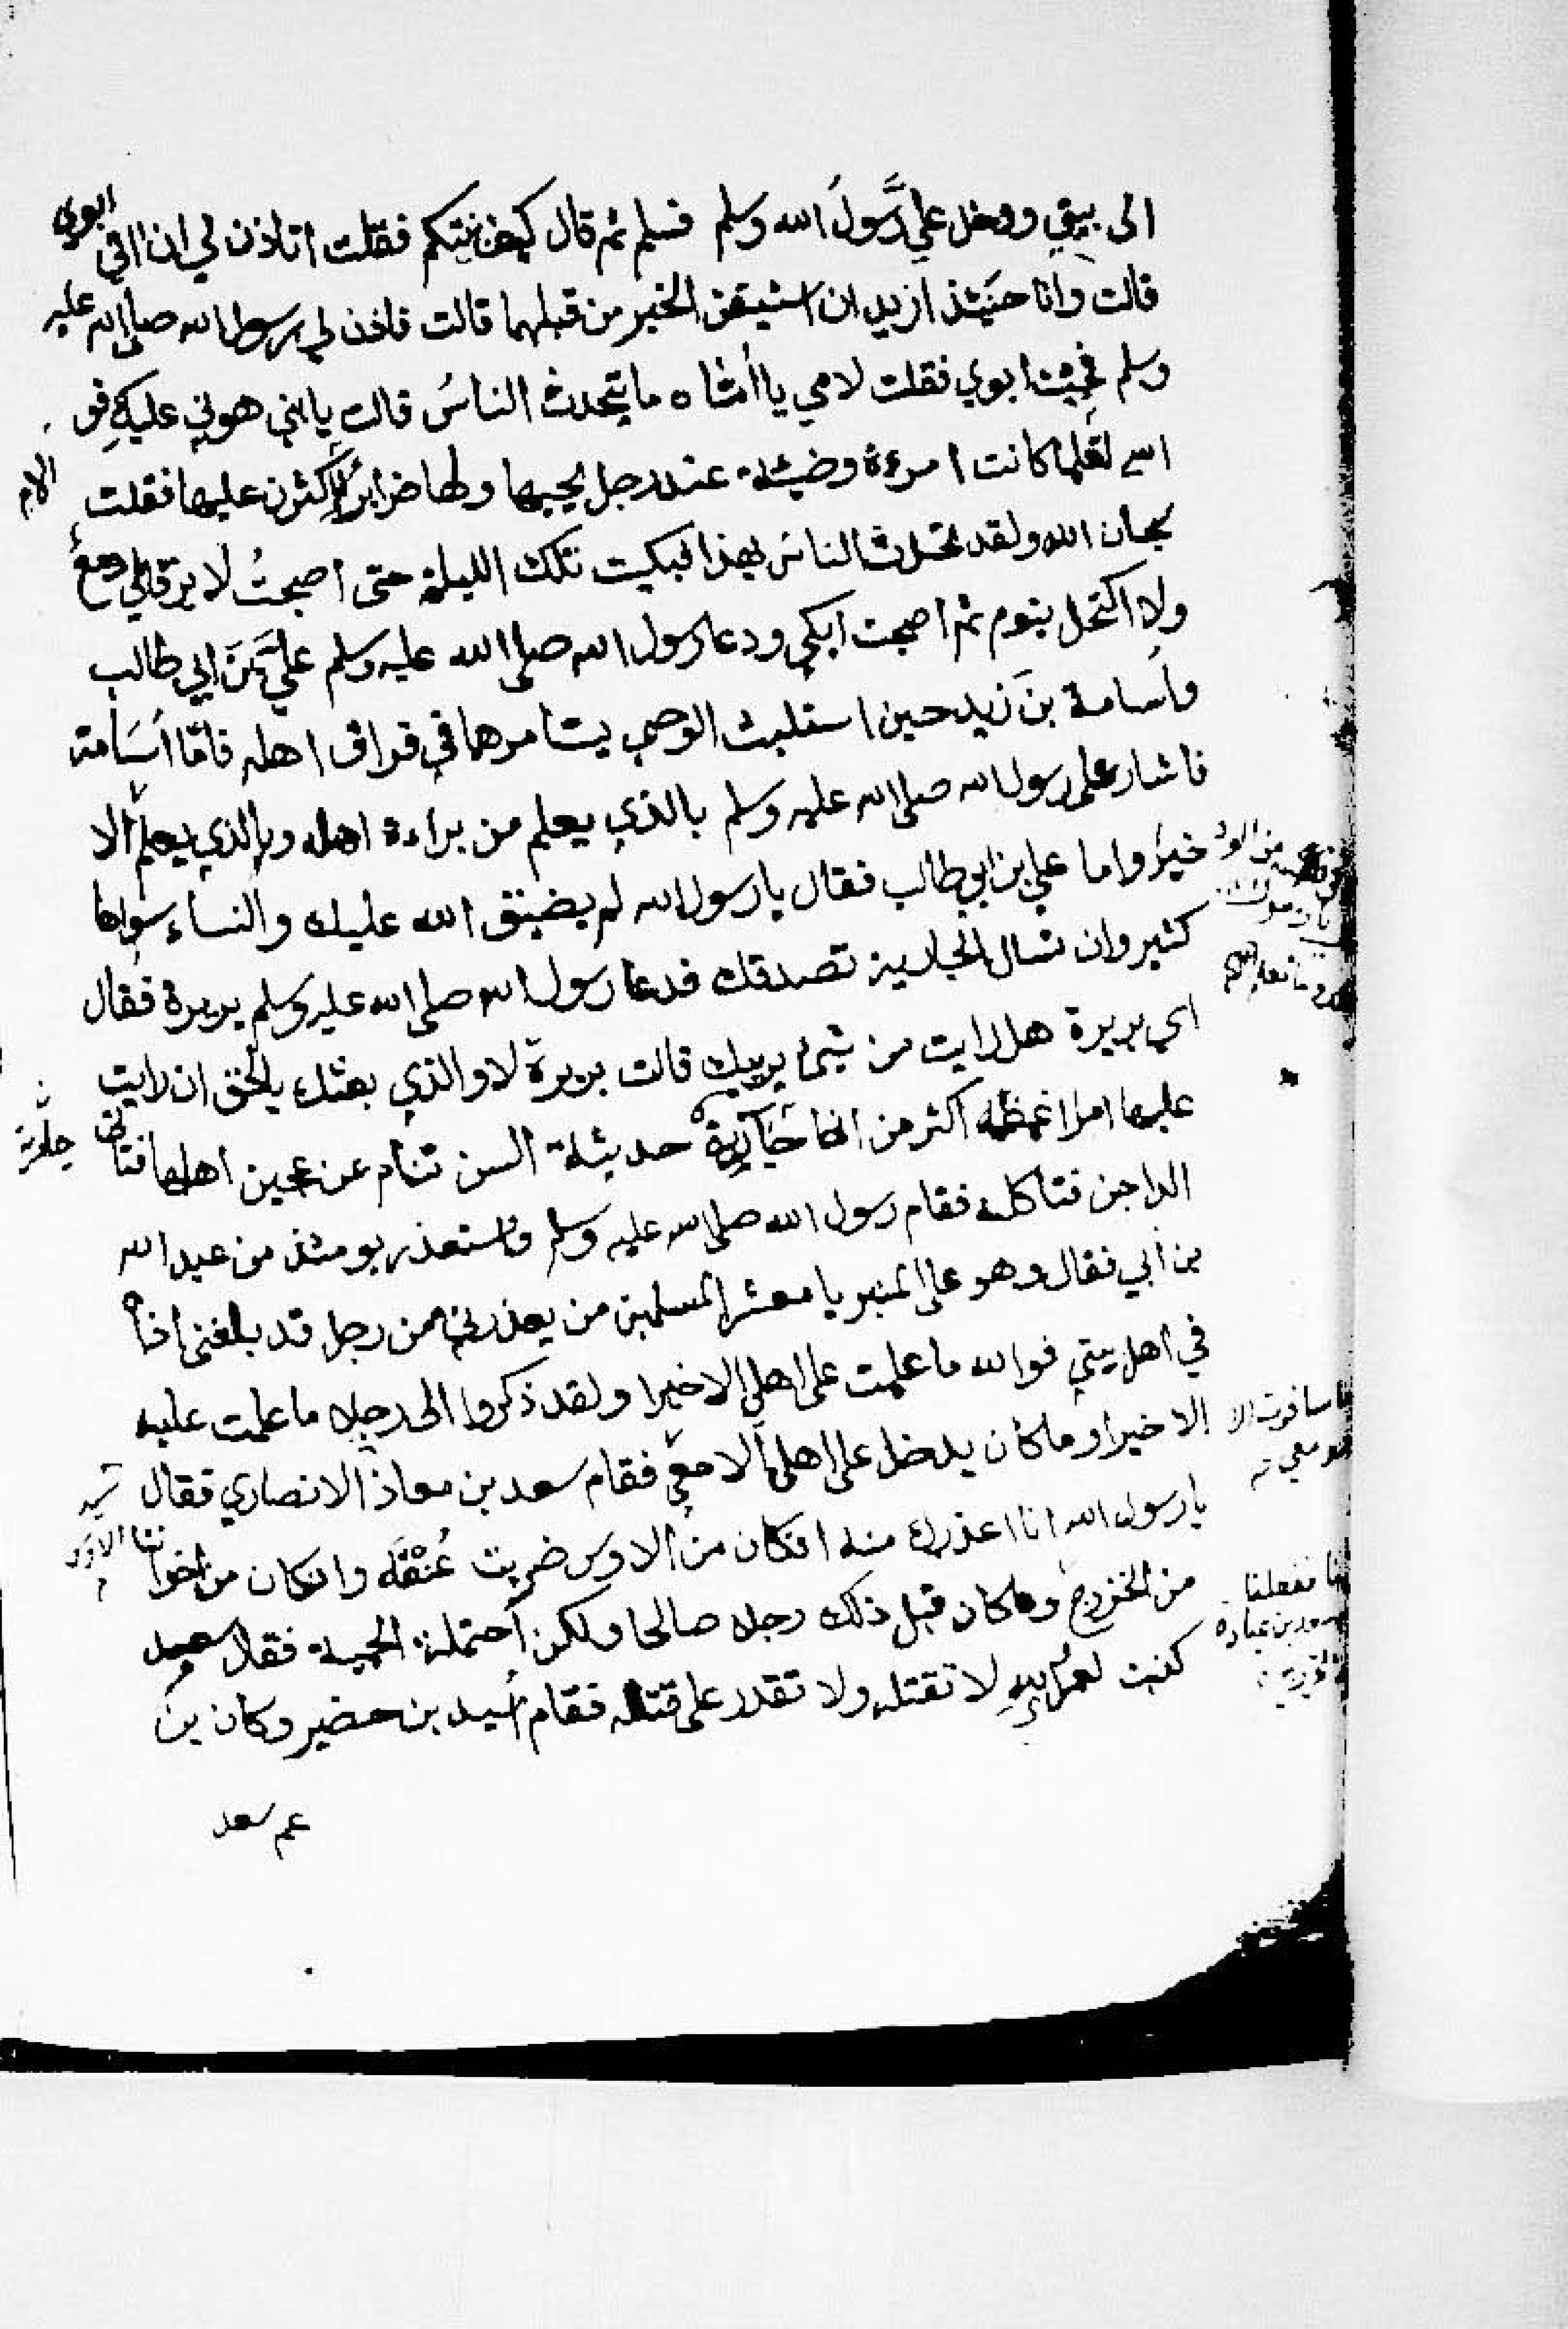 الى بيتي ودخل علي رسول الله وسلم فسلم ثم قال كيف تيكم فقلت اتاذن لي ان اتي ابوي
قالت وانا حينئذ اريد ان استيقن الخبر من قبلهما قالت فاذن لي رسول الله صلى الله عليه
وسلم فجئت ابوي فقلت لامي يا أمتاه ما يتحدث الناس قالت يا بني هوني عليك فو
الله لقلما كانت امرءة وضيئة عند رجل يحبها ولها ضراير إلا كثرن عليها فقلت
سبحان الله ولقد تحدث الناس بهذا فبكيت تلك الليلة حتى أصبحت لا يرقا لي دمع
ولا اكتحل بنوم ثم اصبحت ابكي ودعا رسول الله صلى الله عليه وسلم علي بن ابي طالب
وأسامة بن زيد حين استلبث الوحي يستامرهما في فراق اهله فامّا أسامة
فاشار على رسول الله صلى الله عليه وسلم بالذي يعلم من براءة اهله وبالذي يعلم الا
خيرا واما علي بن ابي طالب فقال يا رسول الله لم يضيق الله عليك والنساء سواها
كثير وان تسال الجارية تصدقك فدعا رسول الله صلى الله عليه وسلم بريرة فقال
اي بريرة هل رايت من شيء يريبك قالت بريرة لا والذي بعثك بالحق ان رايت
عليها امرا اغمظه اكثر من انها جارية حديثة السن تنام عن عجين اهلها فتاتى
الداجن فتاكله فقام رسول الله صلى الله عليه وسلم فاستعذر يومئذ من عبد الله
بن أبي فقال وهو على المنبر يا معشر المسلمين من يعذرني من رجل قد بلغني اذاه
في اهل بيتي فوالله ما علمت على اهلي الا خيرا ولقد ذكروا الى رجلا ما علمت عليه
الا خيرا وما كان يدخل على اهلي الا معي فقام سعد بن معاذ الانصاري فقال
يا رسول الله انا اعذرك منه انكان من الاوس ضربت عُنْقَه وانكان من اخواننا
من الخزرج وكان قبل ذلك رجلا صالحا ولكن احتملته الحمية فقال سعيد
كذبت لعمر الله لا تقتله ولا تقدر على قتله فقام أسيد بن حضير وكان بن
عم سعد